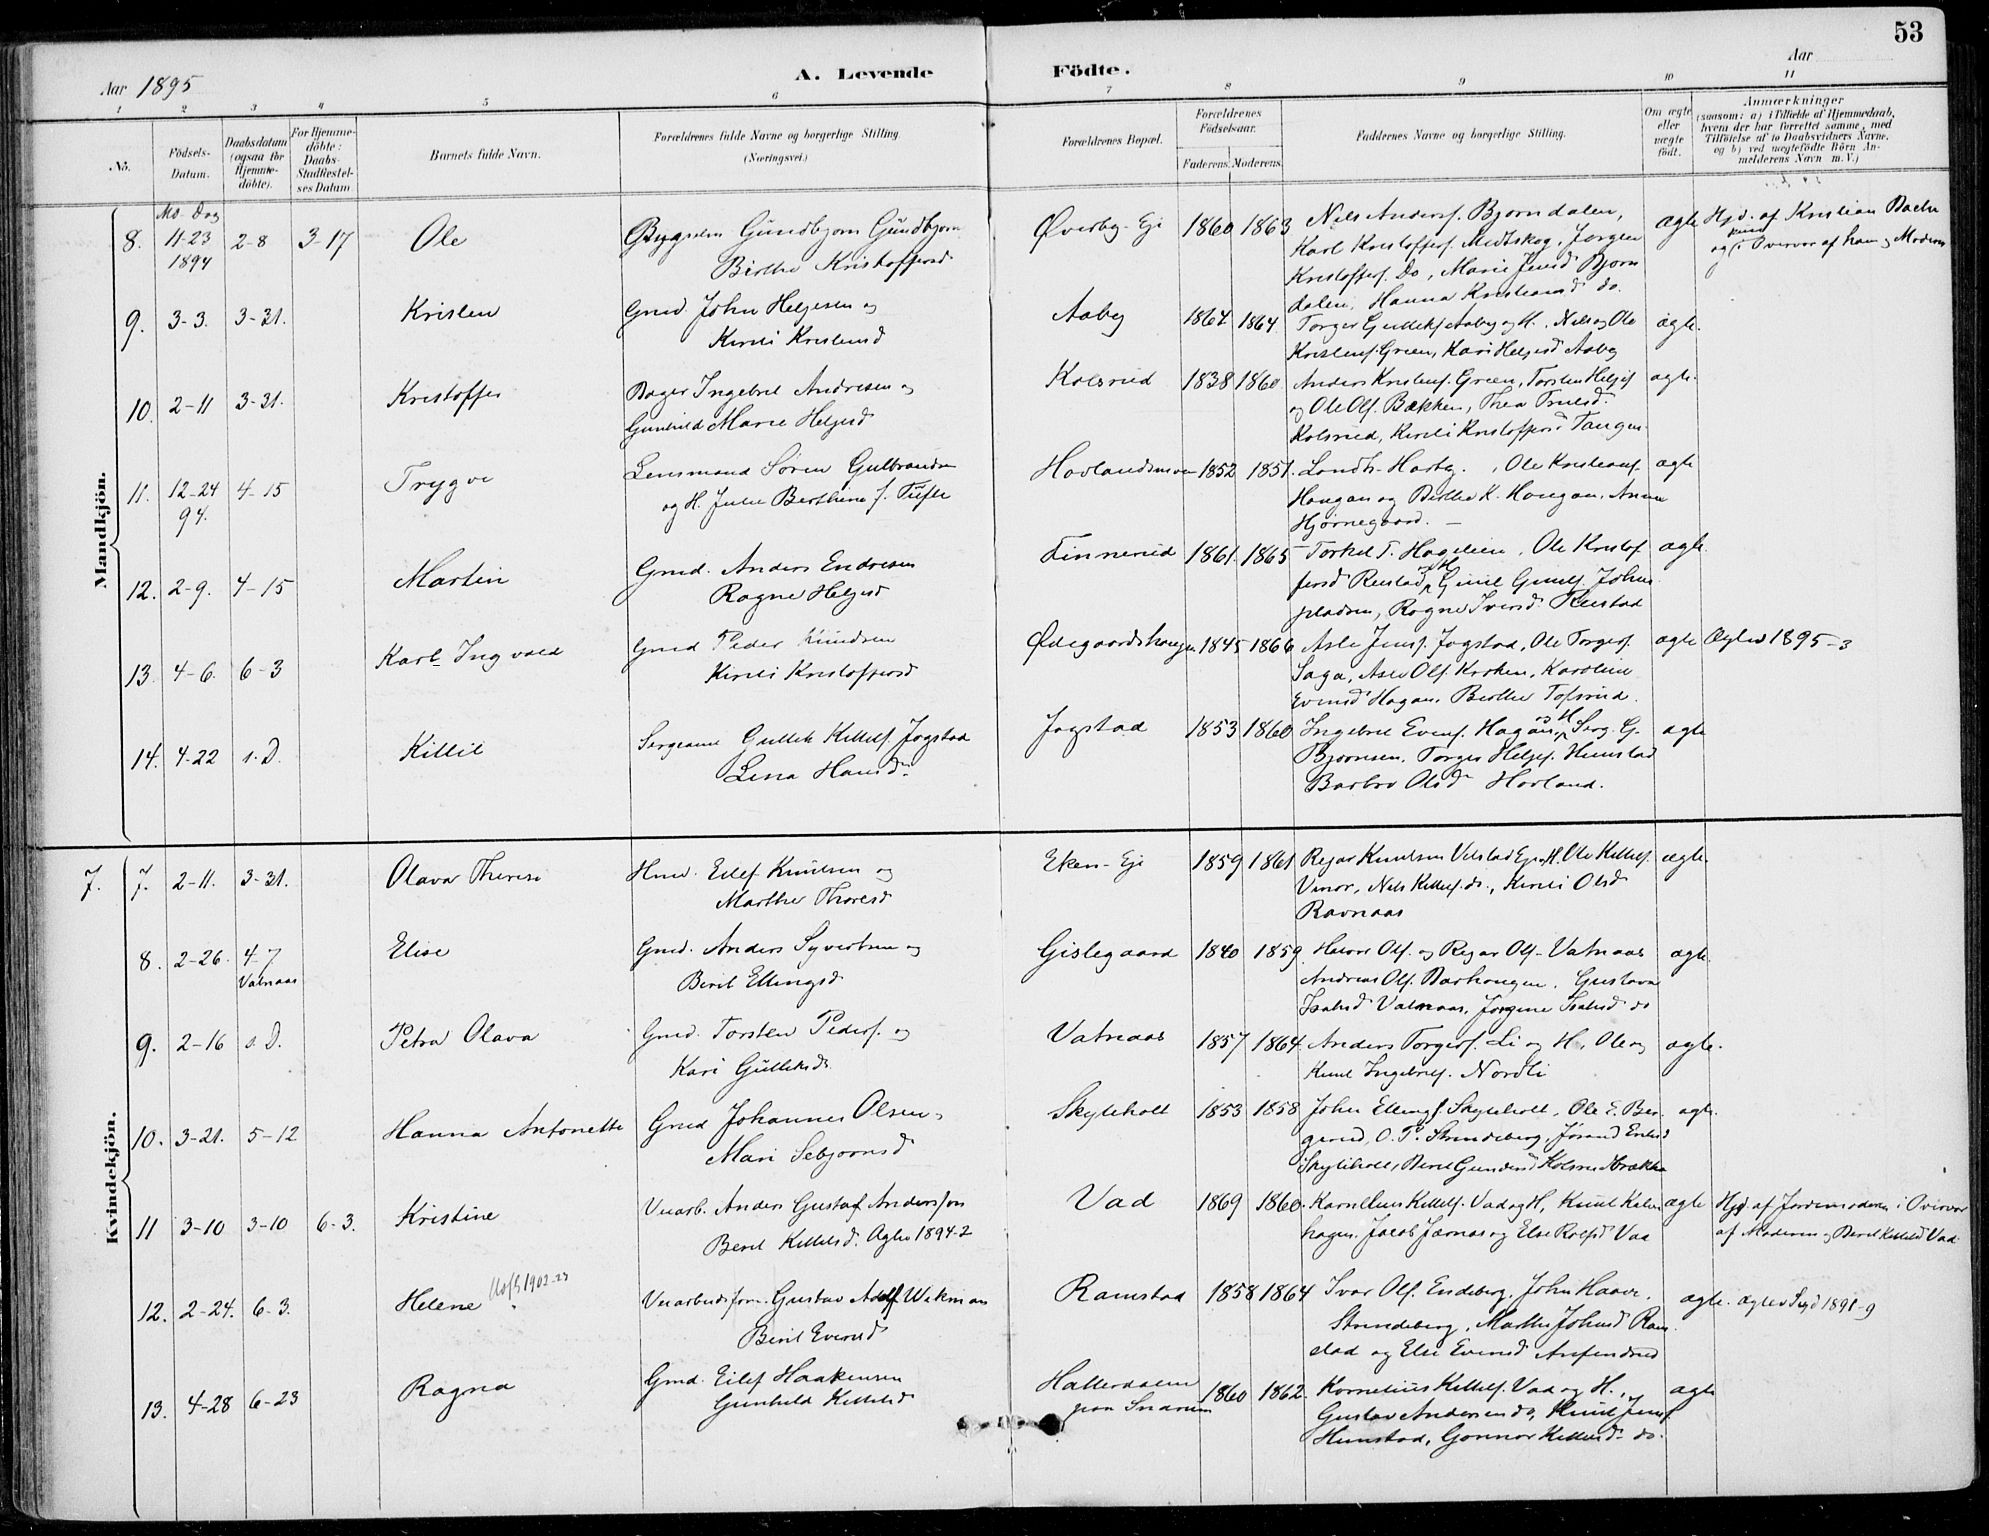 53
Aar 1895
A. Levende Födte.
Aar
1 2 3 4 5 6 7 8 9 10 11
No.
Födsels-Datum.
Daabsdatum (ogsaa for Hjemme-döbte).
For Hjemme-döbte: Daabs-Stadfæstel-ses Datum
Barnets fulde Navn.
Forældrenes fulde Navne og borgerlige Stilling. (Næringsvei.)
Forældrenes Bopæl.
Forældrenes Födselsaar.
Faderens. Moderens.
Faddernes Navne og borgerlige Stilling.
Om ægte eller uægte födt.
Anmærkninger
(saasom: a) i Tilfælde af Hjemmedaab,
hvem der har forrettet samme, med
Tilföielse af to Daabsvidners Navne,
og b) ved uægtefödte Börn An-
melderens Navn m. V.)
Mandkjön.
Mo- Dag
8. 11-23 1894 2-8 3-17 Ole
Gundbjørn Gundbjørn
Birthe Kristoffersd
Øverby- Eje 1860 1863
Nils Anders. Bjørndalen,
Karl Kristoffers. Midtskog, Jørgen
Kristoffers. Do, Marie Jensd Bjørn
dalen, Hanna Kristiansd do.
ægte
Hjd. af Kristian
og i Overvær af ham og Moderen
9. 3-3. 3-31. Kristen
Grud. John Helgesen og
Kirsti Kristensd
Aaby 1864 1864
Torger Gulliks. Aaby og H., Nils og Ole
Kristens. Green, Kari Helgesd Aaby
ægte.
10. 2-11 3-31. Kristoffer
Ingebret Andresen og
Gunhild Marie Helgesd
Kolsrud 1838 1860
Anders Kristens. Green, Torsten Helges
og Ole Ols. Bækken, Thea Truelsd.
Kolsrud, Kirsti Kristoffersd Tangen
ægte.
11. 12-24 94. 4-15 Trygve
Lensmand Søren Gulbrandsen
og H. Julie Berthine f. Tufte
1852 1851.
Ole Kristians.
Haugan og Birthe K. Haugan, Anna
Hjørnegaard. —
ægte
12. 2-9. 4-15 Martin
Grud. Anders Endresen
Ragne Helgesd
Finnerud 1861. 1865
Torkel T. Hageleien, Ole Kristof
fersd Rustad og H, Guul Guuls. Johns
pladsen, Ragne Iversd. Rustad
ægte.
13. 4-6. 6-3 Karl Ingvald
Grud Peder Knudsen
Kirsti Kristoffersd
Ødegaardshaugen 1845 1866
Asle Jens. Jogstad, Ole Torgers.
Saga, Asle Ols. Kroken, Karoline
Evensd Hagan, Berthe Tofsrud.
ægte Ægtev 1895-3
14. 4-22 s.D. Killil
Sergeant Gullik Kittils. Jogstad
Lena Hansd.
Jogstad 1853 1860
Ingebret Evens. Hagan og H, Serg. G.
Bjørnsen, Torger Helges. Hunstad
Barbro Olsd Hovland.
ægte
Kvindekjön.
7. 7. 2-11. 3-31. Olava Therese
Hmd. Eilef Knudsen og
Marthe Thoresd
Eken- Eje 1859 1861
Rejar Knudsen Velstad Eje og H. Ole Kittils.
Vmor, Nils Kittils. do., Kirsti Olsd
Ravnaas
ægte.
8. 2-26. 4-7 Vatnaas Elise
Grud. Anders Syvertsen og
Berit Ellingsd
Gislegaard 1840 1859
Halvor Ols. og Rejar Ols. Vatnaas
Andreas Ols. Darhaugen, Gustava
Isaksd Vatnaas, Jørgine Isaksd do
ægte.
9. 2-16 s.D. Petra Olava
Grud. Torsten Peders. og
Kari Gulliksd.
Vatnaas 1857 1864
Anders Torgers. Li og H., Ole og
Knut Ingebrets. Nordli
ægte.
10. 3-21. 5-12 Hanna Antonette
Grud Johannes Olsen,
Mari Sebjørnsd
Skyteholt 1853 1858
John Ellings Skyteholt, Ole E. Ber
gerud, O. P. Strandeberg, Jørand Eriksd
Skyteholt, Berit Gundersd Kolsrud
ægte.
11 3-10 3-10 6-3. Kristine
Verarb. Anders Gustaf Andersson
Berit Kittilsd. Ægtev 1894-2
Vad 1869 1860.
Kornelius Kittils. Vad og H, Knut Kalv
hagen, Jacob Jærnes og Else Rolfsd Vad
ægte
Hjd. af Jordemoderen i Overvær
af Moderen og Berit Kittilsd Vad
12. 2-24. 6-3. Helene 1902-23
Verarbeidsform. Gustav Adolf Wikman
Berit Evensd
Ramstad 1858 1864
Ivar Ols. Endeberg, John Haavr.
Strandeberg, Marthe Johnsd Ram
stad og Else Evensd Anfindsrud
ægte. Ægtev Sigd 1891-9
13. 4-28 6-23 Ragna
Grud. Eilef Haakensen
Gunhild Kittilsd
Hallerdalen
paa Snarum 1860 1862.
Kornelius Kittils. Vad og H.,
Gustav Andersen do, Knut Jens.
Hunstad, Gonnor Kittilsd do.
ægte